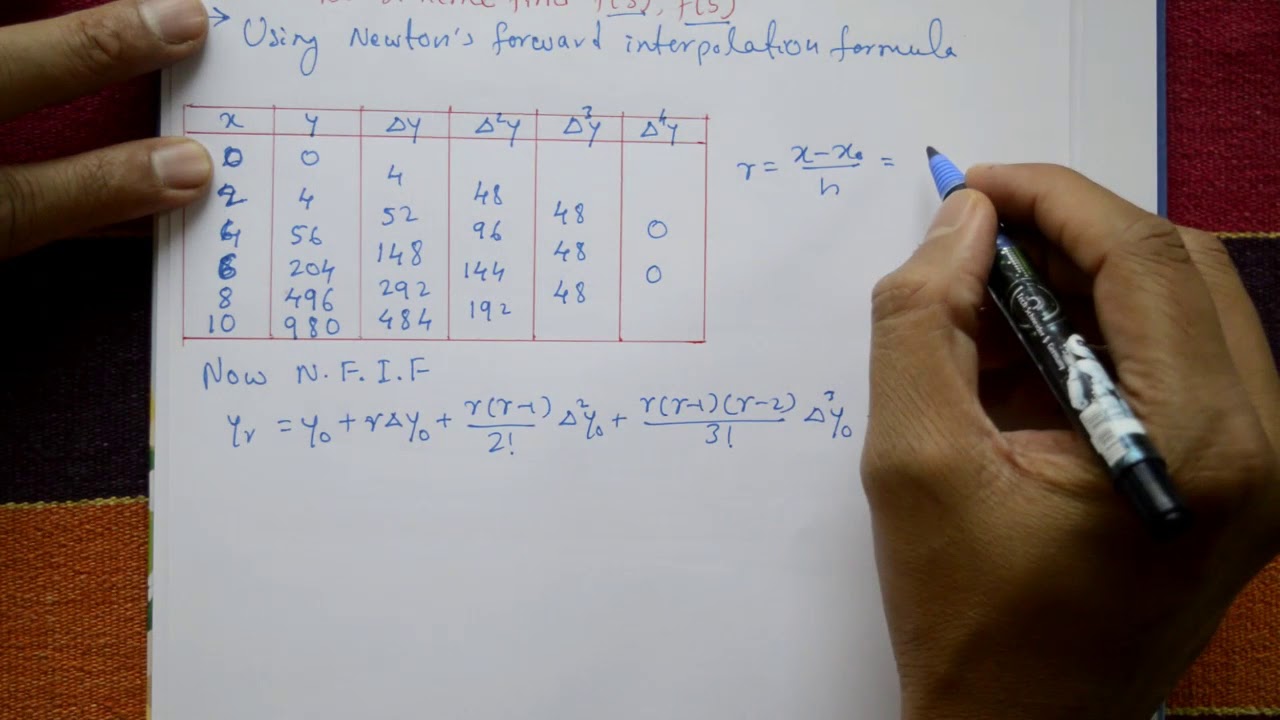 hence find f(3), f(5)
→ Using Newton's forward interpolation formula
x y Δy Δ²y Δ³y Δ⁴y
0 0
4
2 4 48
52 48
4 56 96 0
148 48
6 204 144 0
292 48
8 496 192
484
10 980
r = (x-x₀)/h =
Now N.F.I.F
yᵣ = y₀ + rΔy₀ + r(r-1)/2! Δ²y₀ + r(r-1)(r-2)/3! Δ³y₀